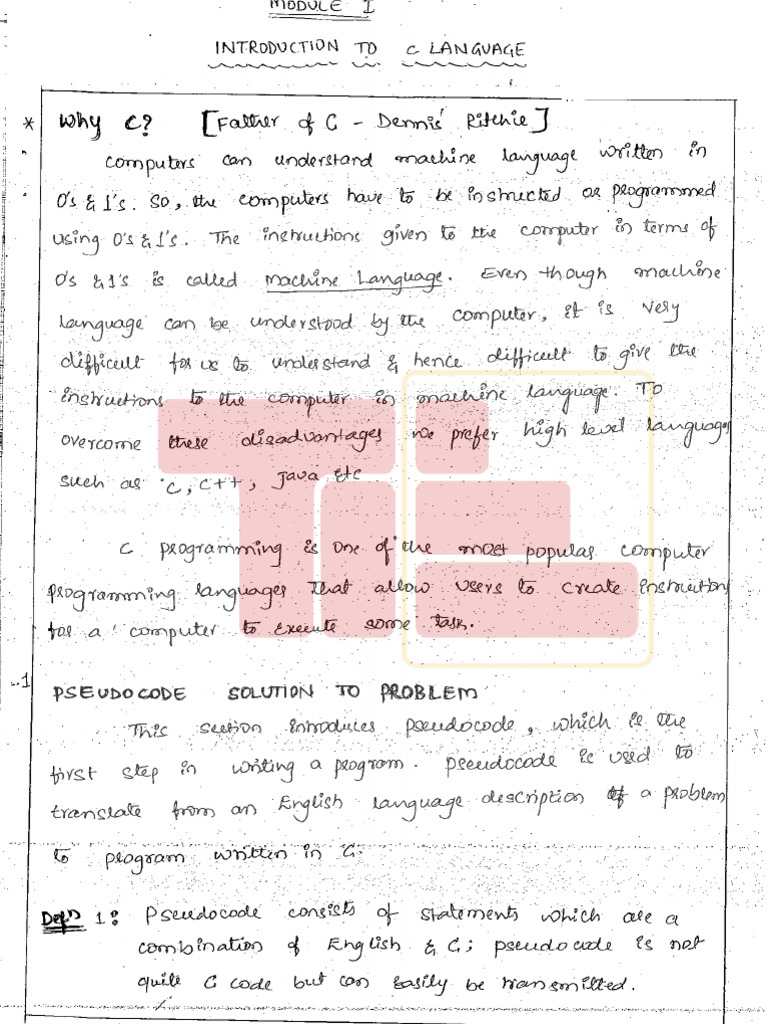 MODULE I
INTRODUCTION TO C LANGUAGE
* Why C? [Father of C - Dennis Ritchie]
computers can understand machine language written in
0's & 1's. So, the computers have to be instructed or programmed
using 0's & 1's. The instructions given to the computer in terms of
0's & 1's is called machine Language. Even though machine
language can be understood by the computer, it is very
difficult for us to understand & hence difficult to give the
instructions to the computer in machine language. To
overcome these disadvantages we prefer high level languages
such as C, C++, Java etc
C programming is one of the most popular computer
programming languages that allow users to create instruction
for a computer to execute some task.
1
PSEUDOCODE SOLUTION TO PROBLEM
This section introduces pseudocode, which is the
first step in writing a program. pseudocode is used to
translate from an English language description of a problem
to program written in C.
Defn 1: Pseudocode consists of statements which are a
combination of English & C; pseudocode is not
quite C code but can easily be transmitted.